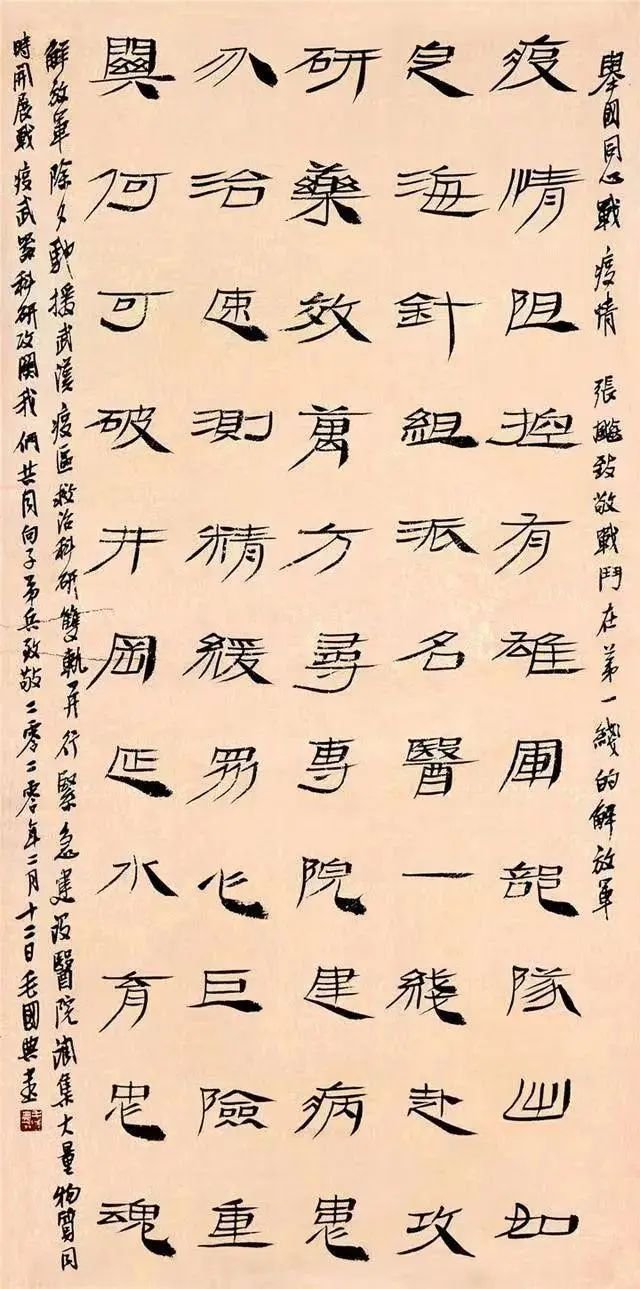 舉國同心戰疫情 張致敬戰鬥在第一綫的解放軍
疫情阻控有雄軍部隊出如
定海針組派名醫一綫赴攻
研藥效萬方尋專院建病患
分治速測精緩眾化巨險重
關何可破井岡延水育忠魂
解放軍除夕馳援武漢疫區救治科研雙軌并行緊急建設醫院調集大量物質同
時開展戰疫武器科研攻關我們共同向子弟兵致敬二零二零年二月十二日毛國典書